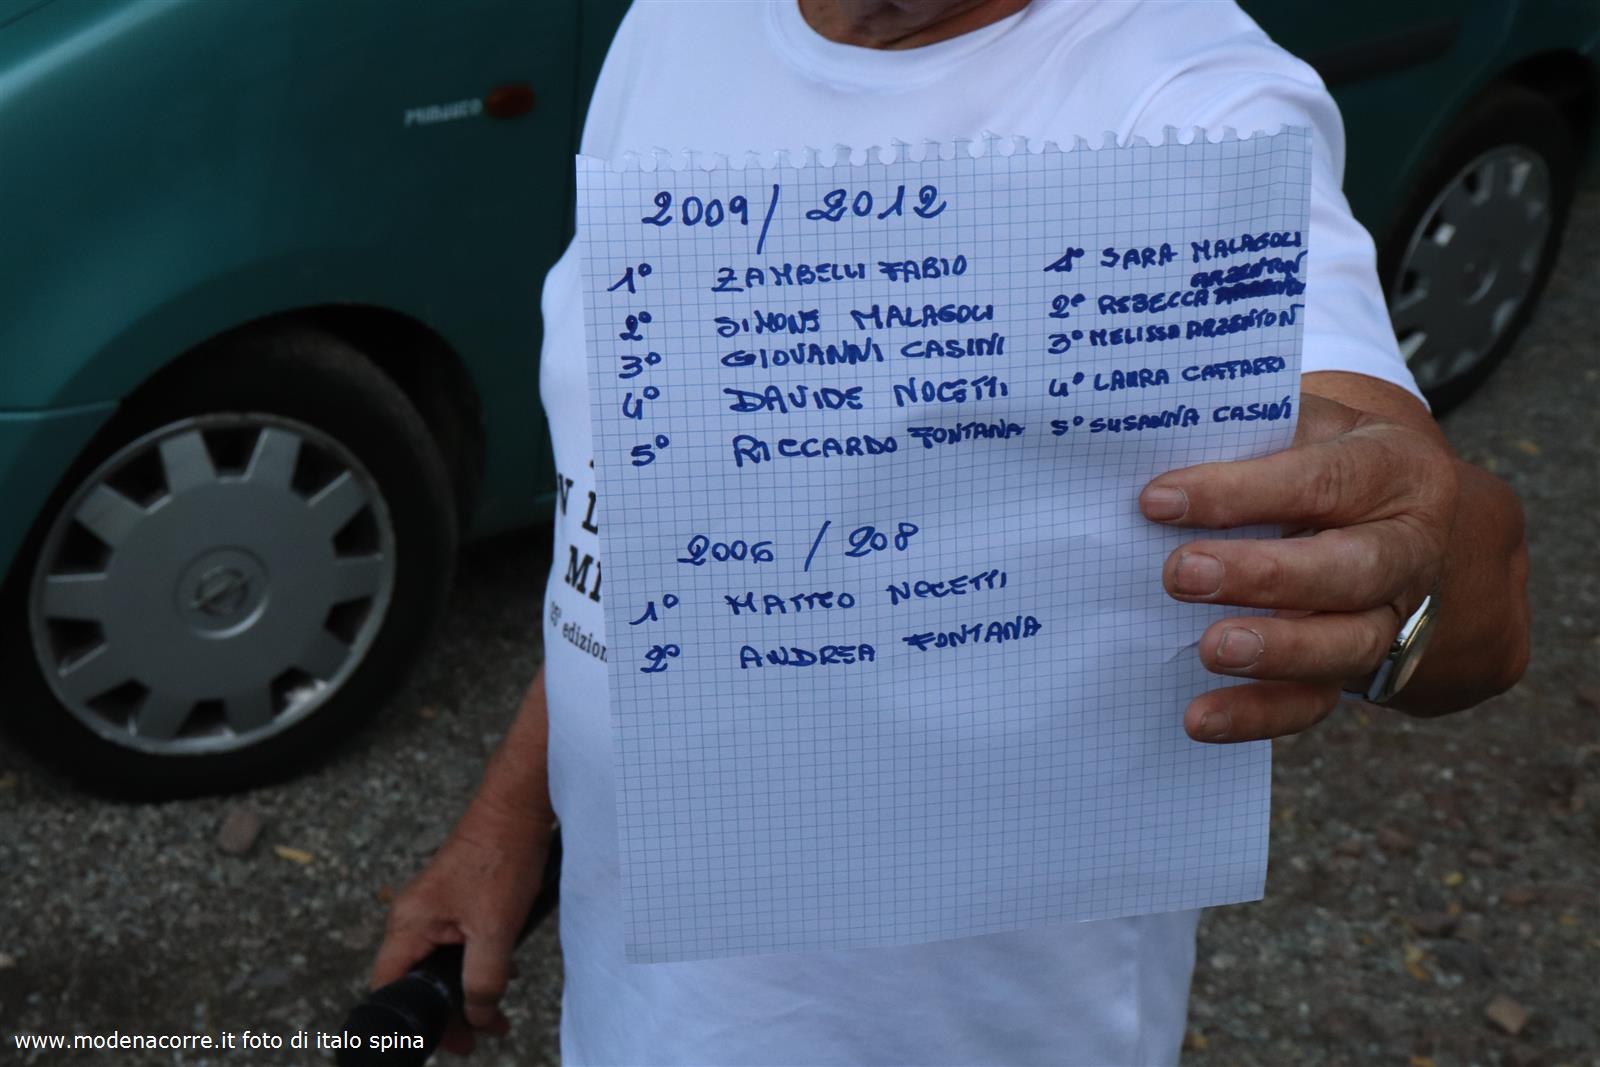 2009/2012
1° ZAMBELLI FABIO
2° SIMONE MALAGOLI
3° GIOVANNI CASINI
4° DAVIDE NOCETTI
5° RICCARDO FONTANA
1° SARA MALAGOLI
ARZENTON
2° REBECCA
3° MELISSA ARZENTON
4° LAURA CAFFARRI
5° SUSANNA CASINI
2006 / 208
1° MATTEO NOCETTI
2° ANDREA FONTANA
N L
MI
25° edizion
www.modenacorre.it foto di italo spina